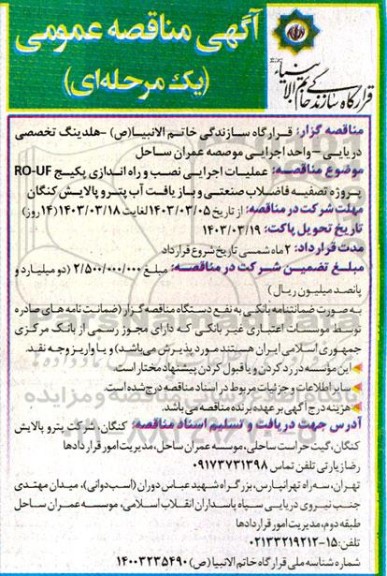 آگهی مناقصه عمومی
(یک مرحله‌ای)
قرارگاه سازندگی خاتم الانبیاء
مناقصه گزار: قرارگاه سازندگی خاتم الانبیا(ص) -هلدینگ تخصصی
دریایی- واحد اجرایی موسسه عمران ساحل
موضوع مناقصه: عملیات اجرایی نصب و راه اندازی پکیج RO-UF
پروژه تصفیه فاضلاب صنعتی و بازیافت آب پترو پالایش کنگان
مهلت شرکت در مناقصه: از تاریخ ۱۴۰۳/۰۳/۰۵ لغایت ۱۴۰۳/۰۳/۱۸ (۱۴روز)
تاریخ تحویل پاکت: ۱۴۰۳/۰۳/۱۹
مدت قرارداد: ۲ ماه شمسی تاریخ شروع قرارداد
مبلغ تضمین شرکت در مناقصه: مبلغ ۲/۵۰۰/۰۰۰/۰۰۰ (دو میلیارد و
پانصد میلیون ریال)
به صورت ضمانتنامه بانکی به نفع دستگاه مناقصه گزار (ضمانت نامه های صادره
توسط موسسات اعتباری غیر بانکی که دارای مجوز رسمی از بانک مرکزی
جمهوری اسلامی ایران هستند مورد پذیرش می‌باشد) و یا واریز وجه نقد
این مؤسسه در رد کردن و یا قبول کردن پیشنهاد مختار است.
سایر اطلاعات و جزئیات مربوط در اسناد مناقصه درج شده است.
هزینه درج آگهی بر عهده برنده مناقصه می باشد.
آدرس جهت دریافت و تسلیم اسناد مناقصه: کنگان، شرکت پترو پالایش
کنگان، گیت حراست ساحلی، موسسه عمران ساحل، مدیریت امور قراردادها
رضا زیارتی تلفن تماس ۰۹۱۷۳۷۳۱۳۹۸
تهران، سه راه تهرانپارس، بزرگراه شهید عباس دوران (اسب دوانی)، میدان مهتدی
جنب نیروی دریایی سپاه پاسداران انقلاب اسلامی، موسسه عمران ساحل
طبقه دوم، مدیریت امور قراردادها
تلفن: ۱۵-۰۲۱۳۳۲۱۹۲۱۲
شماره شناسه ملی قرارگاه خاتم الانبیا (ص) ۱۴۰۰۳۲۳۵۴۹۰